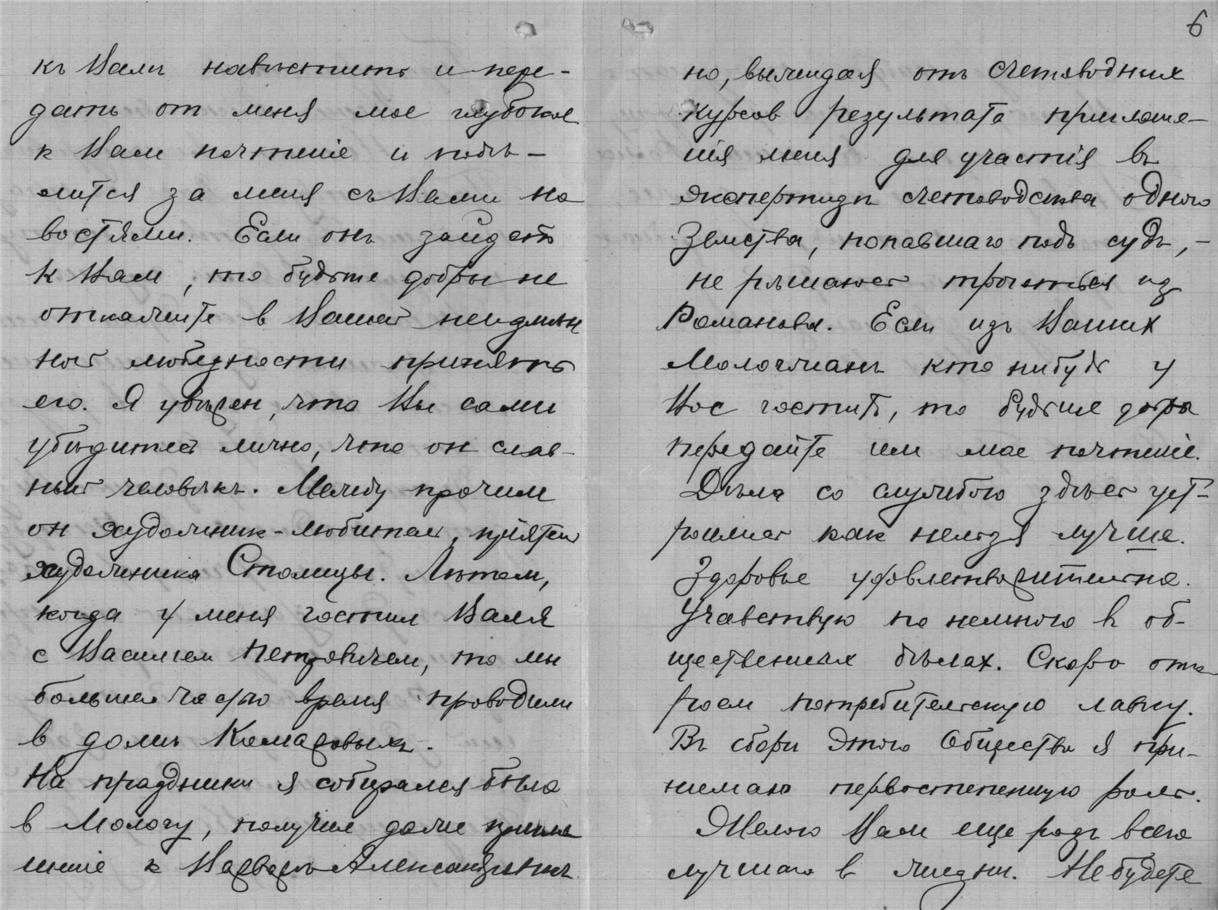 къ Вамъ навѣстить и пере-
дать от меня мое глубокое
к Вам почтенiе и подѣ-
лится за меня съ Вами но
востями. Если онъ зайдетъ
к Вам, то будьте добры не
откажите в Вашей неизмѣн
ной любезности принять
его. Я увѣрен, что Вы сами
убѣдитесь лично, что он слав-
ный человѣкъ. Между прочим
он художник-любитель, прiятель
художника Столицы. Лѣтом,
когда у меня гостил Валя
с Василiем Петровичем, то мы
большею частью время проводили
в домѣ Комаровыхъ.
На праздники я собирался было
в Мологу, получил даже пригла
шенiе к Варварѣ Александровнѣ
6
но, выжидая отъ счетоводных
курсов результата приглаше-
нiя меня для участiя въ
экспертизѣ счетоводства одного
Земства, попавшаго подъ судъ, -
не рѣшаюсь тронуться из
Романова. Если изъ Ваших
Моложжан кто нибудь у
Вас гостит, то будьте добры
передайте им мое почтенiе.
Дѣла со службою здѣсь уст-
роились как нельзя лучше.
Здоровье удовлетворительно.
Учавствую по немного в об-
щественных дѣлах. Скоро отк
роем потребительскую лавку.
Въ сборѣ этого Общества я при-
нимаю первостепенную роль.
Желаю Вам еще разъ всего
лучшаго в жизни. Не будете